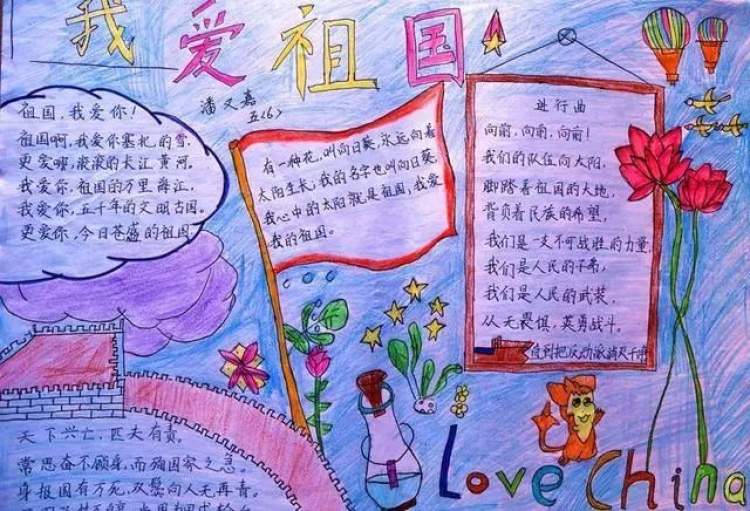 我爱祖国
潘又嘉
五(6)
祖国，我爱你！
祖国啊，我爱你塞北的雪.
更爱哪，滚滚的长江黄河。
我爱你，祖国的万里
我爱你，五千年的文明古国。
更爱你，今日苍盛的祖国
有一种花，叫向日葵，永远向着
太阳生长，我的名字也叫向日葵，
我心中的太阳就是祖国，我爱
我的祖国。
进行曲
向前，向前，向前！
我们的队伍向太阳，
脚踏着祖国的大地，
背负着民族的希望，
我们是一支不可战胜的力量.
我们是人民的子弟，
我们是人民的武装，
从无畏惧，英勇战斗。
直到把反动派消灭干净
天下兴亡，匹夫有责，
常思奋不顾身，而殉国家之急。
身报国有万死，双鬓向人无再青。
Love China